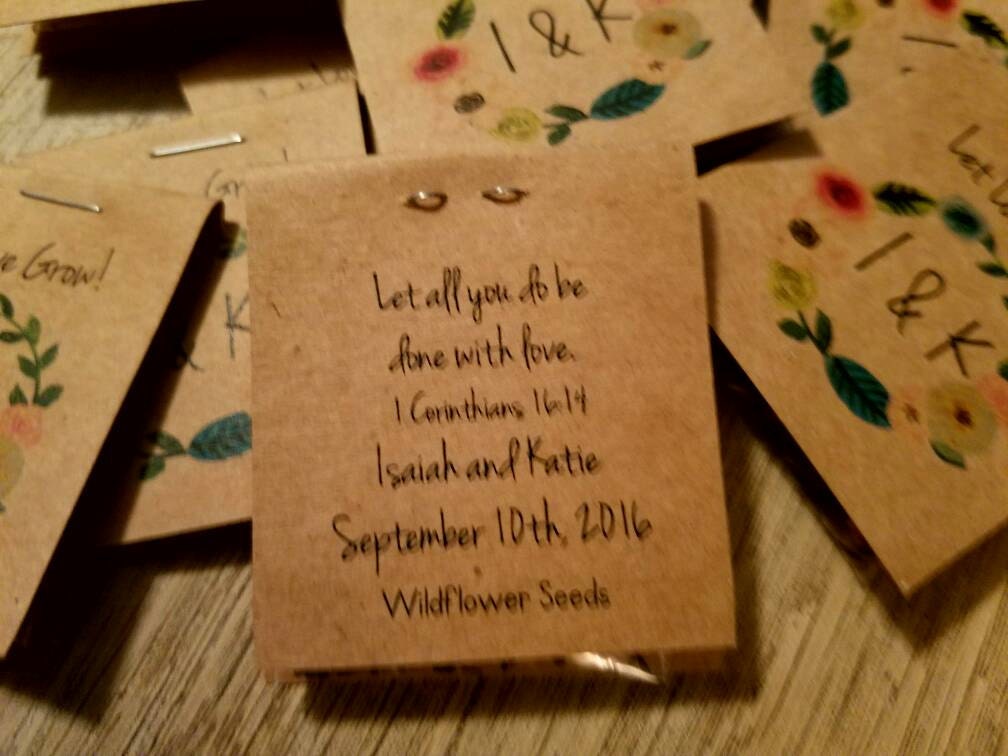 I & K
Gr
ve Grow!
K
Let all you do be
done with love.
1 Corinthians 16:14
Isaiah and Katie
September 10th, 2016
Wildflower Seeds
Let
I & K